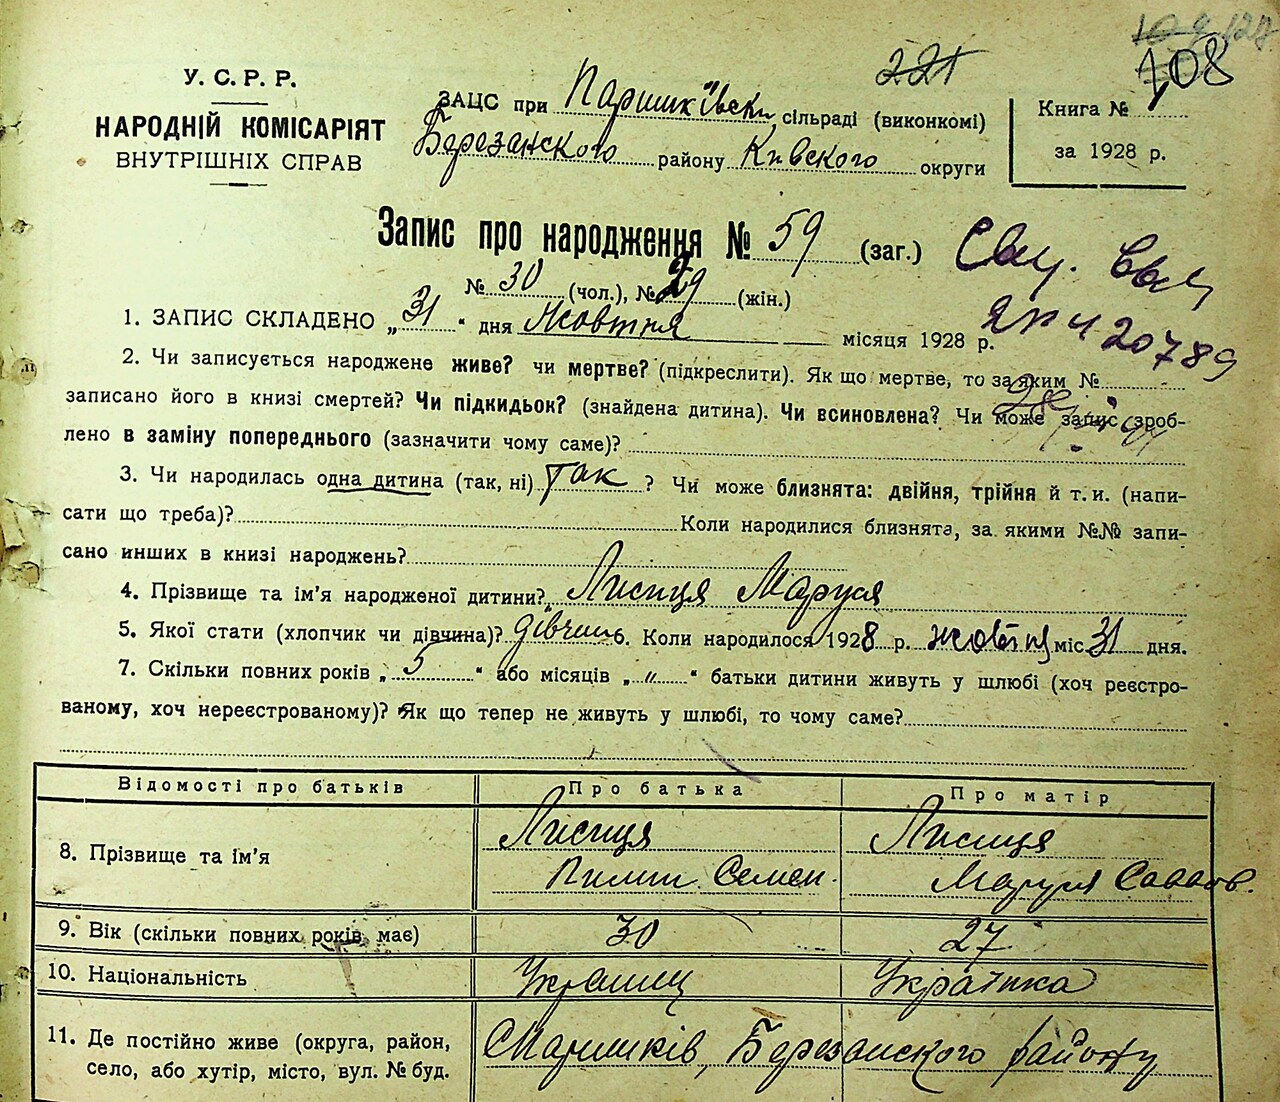 108
221
У. С. Р. Р.
НАРОДНІЙ КОМІСАРІЯТ
ВНУТРІШНІХ СПРАВ
ЗАЦС при сільраді (виконкомі)
Березанского району Київского округи
Книга №
за 1928 р.
Запис про народження № 59 (заг.)
№ 30 (чол.), № 29 (жін.)
20789
1. ЗАПИС СКЛАДЕНО „ 31 “ дня Жовтня місяця 1928 р.
2. Чи записується народжене живе? чи мертве? (підкреслити). Як що мертве, то за яким №
записано його в книзі смертей? Чи підкидьок? (знайдена дитина). Чи всиновлена? Чи може запис зроб-
лено в заміну попереднього (зазначити чому саме)?
3. Чи народилась одна дитина (так, ні) так ? Чи може близнята: двійня, трійня й т. и. (напи-
сати що треба)? Коли народилися близнята, за якими №№ запи-
сано инших в книзі народжень?
4. Прізвище та ім’я народженої дитини? Лисиця Маруся
5. Якої стати (хлопчик чи дівчина)? дівчин 6. Коли народилося 1928 р. жовтня міс. 31 дня.
7. Скільки повних років „ 5 “ або місяців „ „ “ батьки дитини живуть у шлюбі (хоч реєстро-
ваному, хоч нереєстрованому)? Як що тепер не живуть у шлюбі, то чому саме?
Відомості про батьків Про батька Про матір
8. Прізвище та ім’я Лисиця Пилип Семен. Лисиця Маруся Савов.
9. Вік (скільки повних років має) 30 27
10. Національність Українец Українка
11. Де постійно живе (округа, район, Березанского району
село, або хутір, місто, вул. № буд.